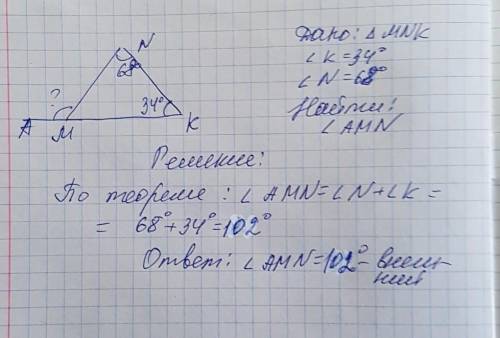 N
68°
?
34°
A
M
K
Дано: △ MNK
∠ K = 34°
∠ N = 68°
Найти:
∠ AMN
Решение:
По теореме : ∠ AMN = ∠ N + ∠ K =
= 68° + 34° = 102°
Ответ: ∠ AMN = 102° - внеш-
ний